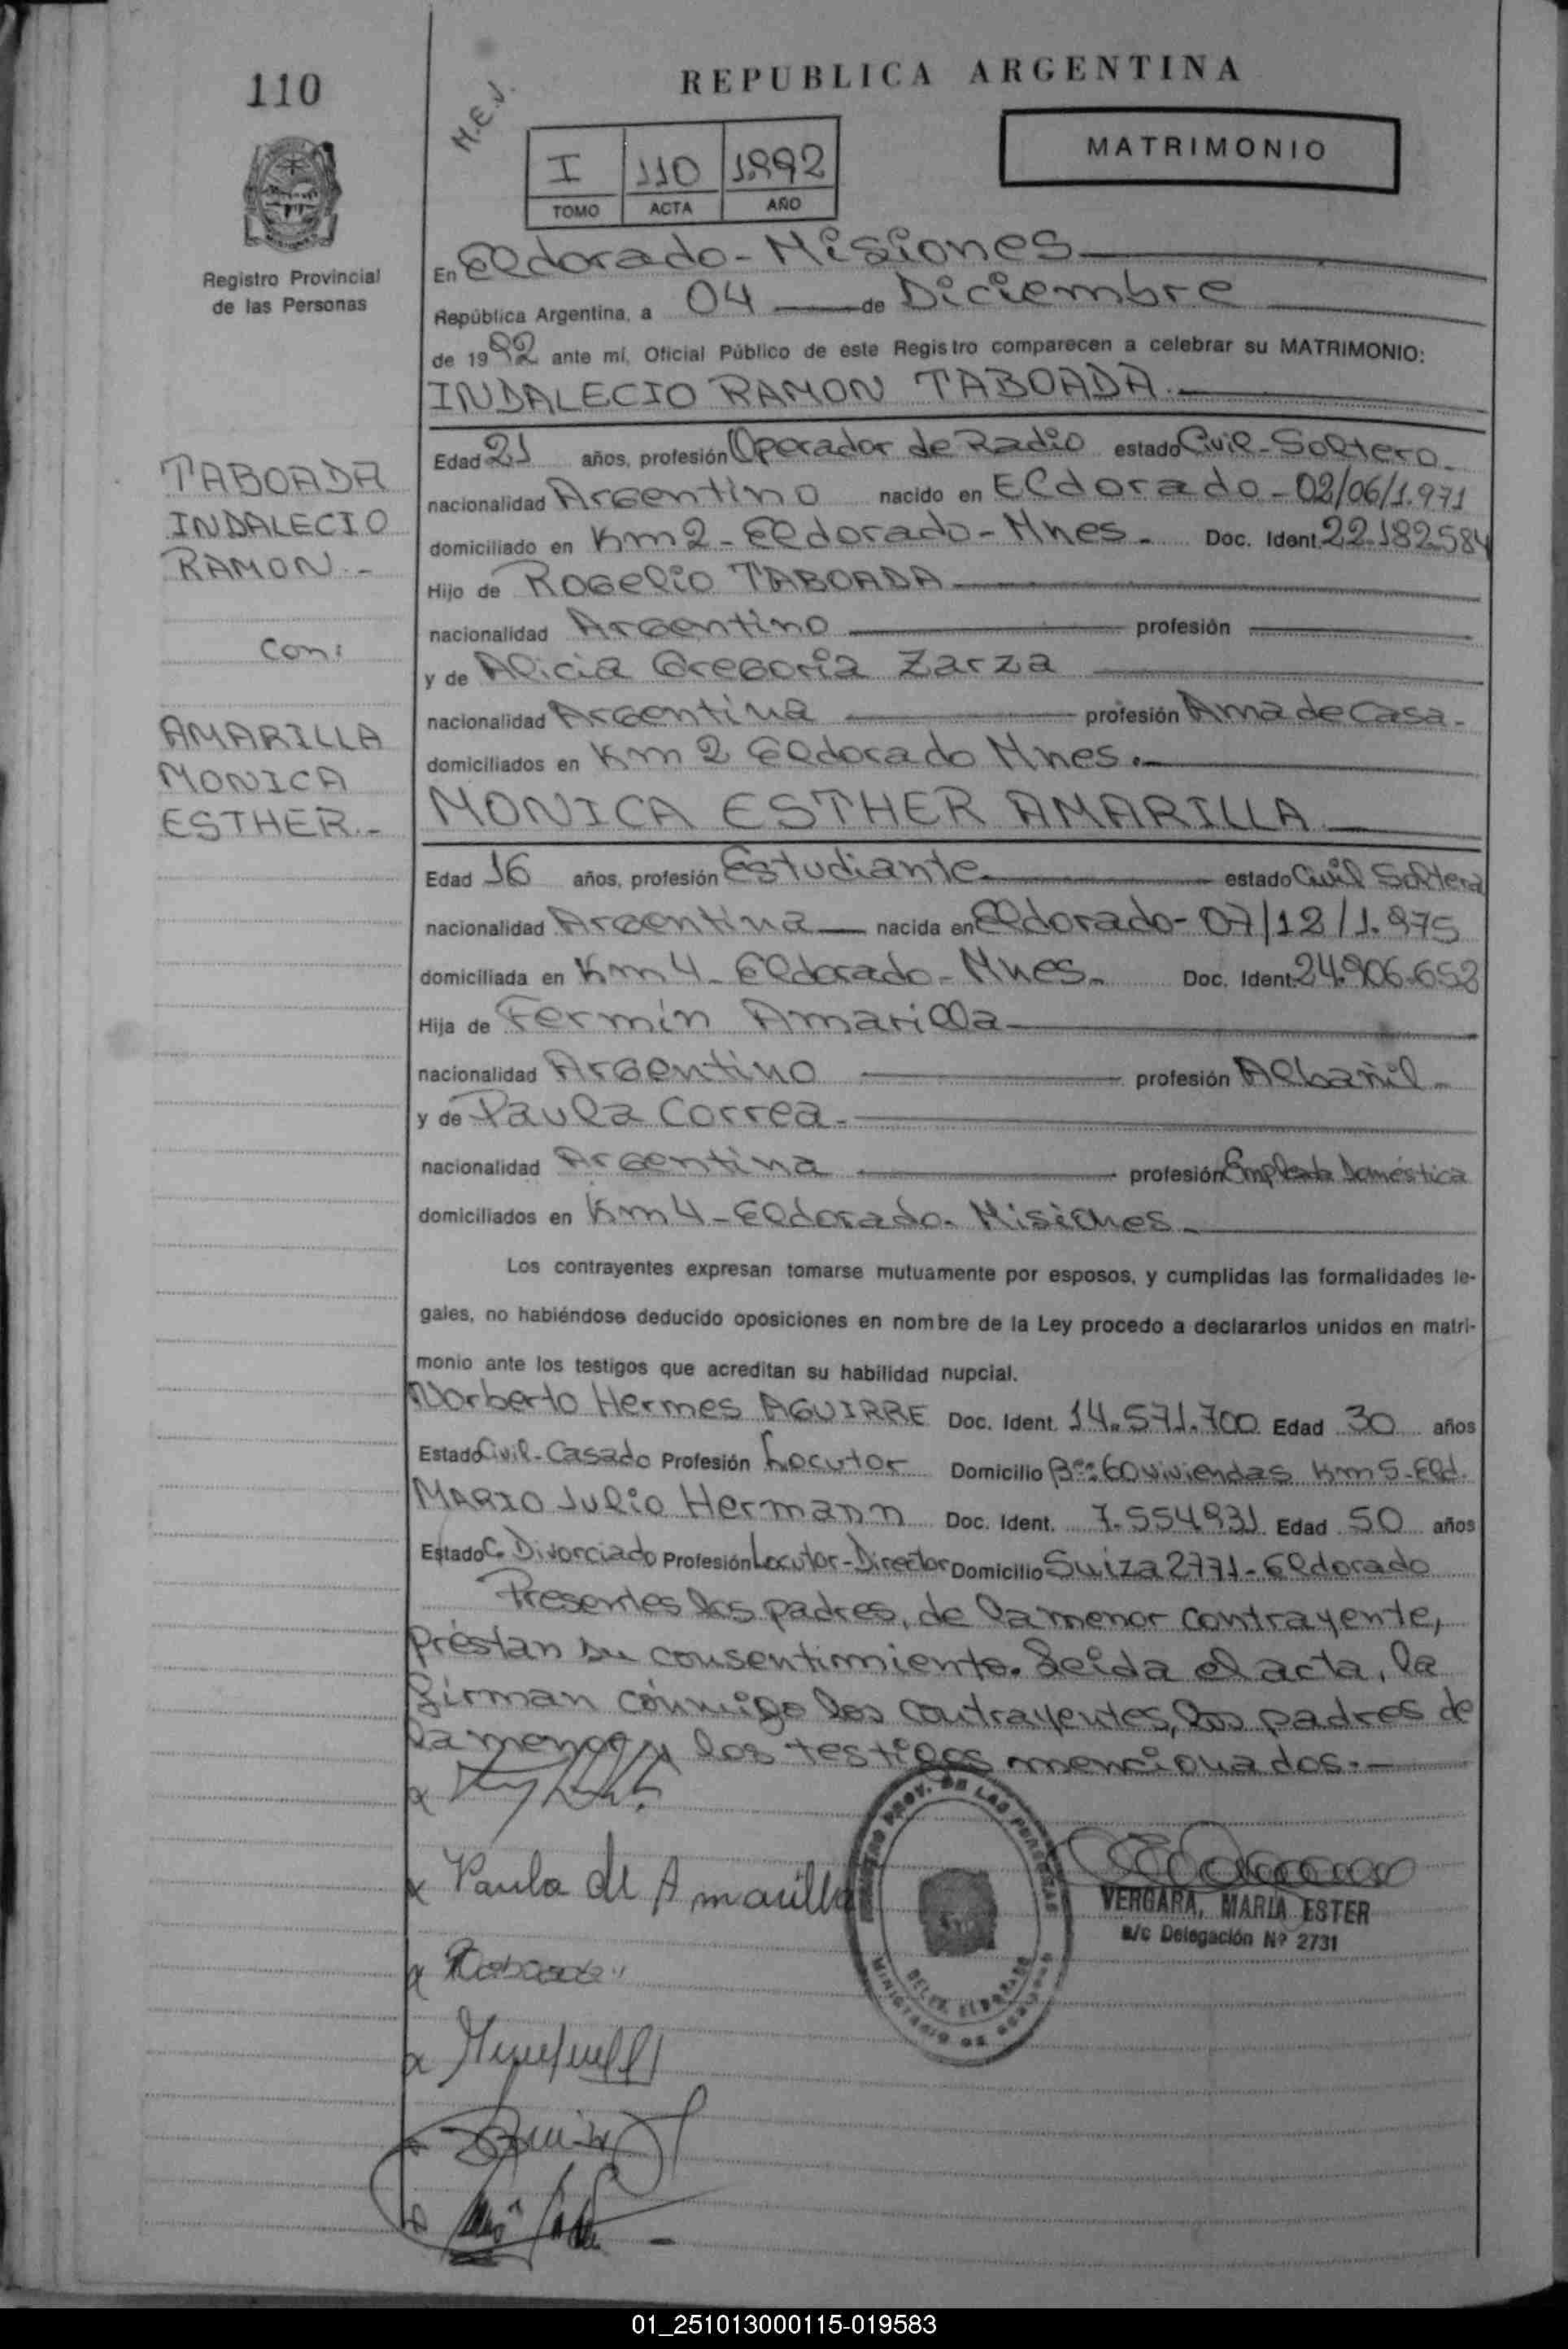 110
REPUBLICA ARGENTINA
M.E.J.
MATRIMONIO
I 110 1.992
TOMO ACTA AÑO
Registro Provincial
de las Personas
En Eldorado - Misiones
República Argentina, a 04 de Diciembre
de 1992 ante mí, Oficial Público de este Registro comparecen a celebrar su MATRIMONIO:
INDALECIO RAMON TABOADA.
TABOADA
INDALECIO
RAMON.-
Con:
AMARILLA
MONICA
ESTHER.-
Edad 21 años, profesión Operador de Radio estado Civil - Soltero.
nacionalidad Argentino nacido en Eldorado - 02/06/1.971
domiciliado en Km 2 - Eldorado - Mnes. Doc. Ident. 22.182.584
Hijo de Rogelio TABOADA
nacionalidad Argentino profesión
y de Alicia Gregoria Zarza
nacionalidad Argentina profesión Ama de Casa -
domiciliados en Km 2 Eldorado Mnes.
MONICA ESTHER AMARILLA
Edad 16 años, profesión Estudiante. estado Civil Soltera
nacionalidad Argentina nacida en Eldorado - 07/12/1.975
domiciliada en Km 4 - Eldorado - Mnes. Doc. Ident. 24.906.652
Hija de Fermín Amarilla
nacionalidad Argentino profesión Albañil -
y de Paula Correa.
nacionalidad Argentina profesión Empleada Doméstica
domiciliados en Km 4 - Eldorado - Misiones
Los contrayentes expresan tomarse mutuamente por esposos, y cumplidas las formalidades le-
gales, no habiéndose deducido oposiciones en nombre de la Ley procedo a declararlos unidos en matri-
monio ante los testigos que acreditan su habilidad nupcial.
Norberto Hermes AGUIRRE Doc. Ident. 14.571.700 Edad 30 años
Estado Civil - Casado Profesión Locutor Domicilio Bº: 60 viviendas Km 5 - Eld.
MARIO Julio Hermann Doc. Ident. 7.554.931 Edad 50 años
Estado C. Divorciado Profesión Locutor - Director Domicilio Suiza 2771 - Eldorado
Presentes los padres, de la menor contrayente,
préstan su consentimiento. Leida el acta, la
firman conmigo los contrayentes, los padres de
la menor y los testigos mencionados.
Paula de Amarilla
REGISTRO PROV. DE LAS PERSONAS
DELEG. ELDORADO
MINISTERIO DE GOBIERNO
VERGARA, MARIA ESTER
a/c Delegación Nº 2731
01_251013000115-019583